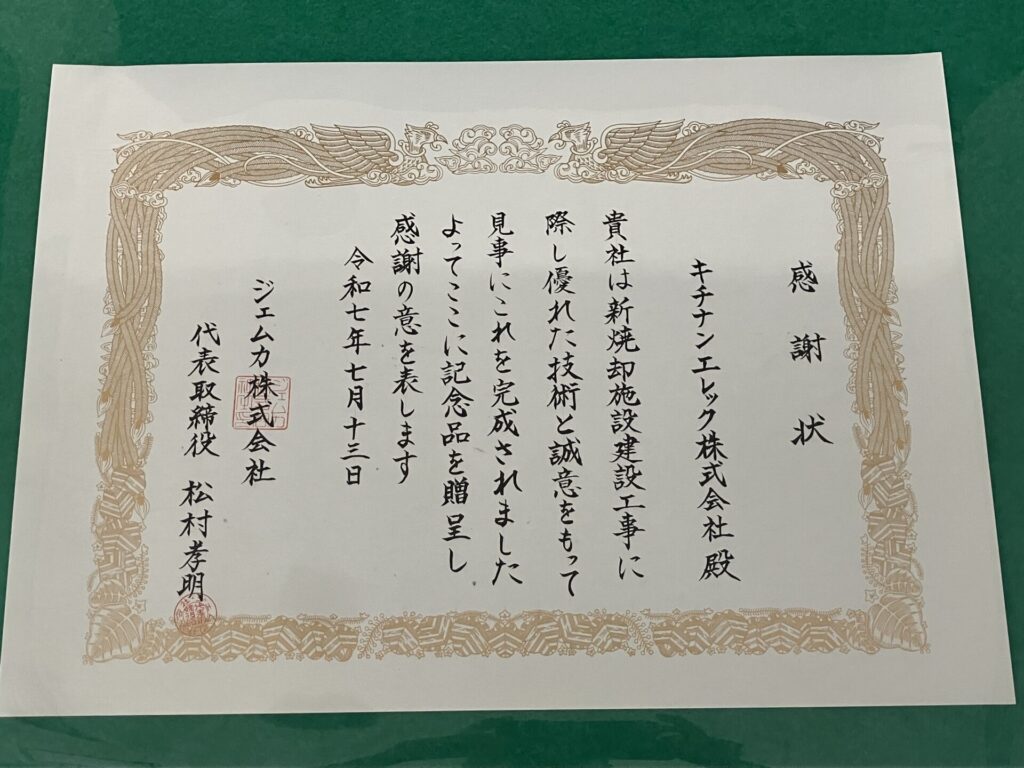 感謝状
キチナンエレック株式会社殿
貴社は新焼却施設建設工事に
際し優れた技術と誠意をもって
見事にこれを完成されました
よってここに記念品を贈呈し
感謝の意を表します
令和七年七月十三日
ジェムカ株式会社
代表取締役 松村孝明